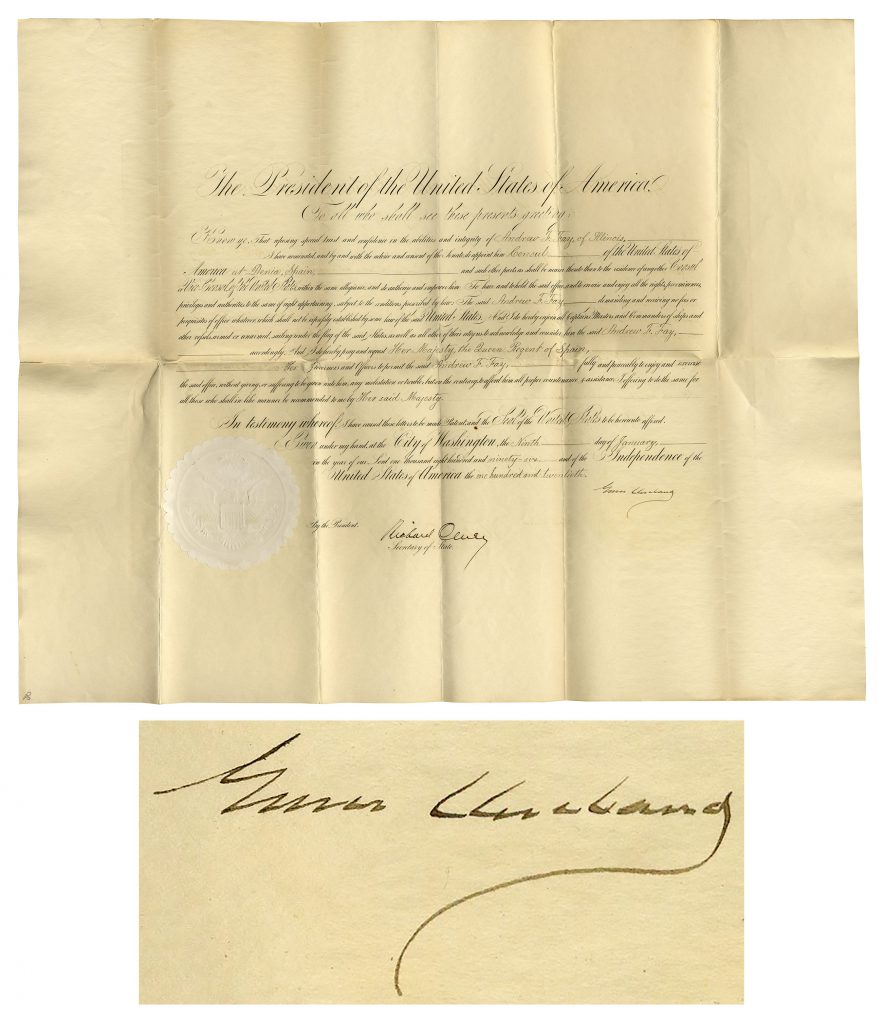 The President of the United States of America.
To all who shall see these presents greeting:
Know ye, That reposing special trust and confidence in the abilities and integrity of Andrew F. Fay, of Illinois,
I have nominated, and by and with the advice and consent of the Senate do appoint him Consul of the United States of
America at Denia, Spain, and such other parts as shall be nearer thereto than to the residence of any other Consul
or Vice Consul of the United States, within the same allegiance, and do authorize and empower him To have and to hold the said office, and to exercise and enjoy all the rights, preeminences,
privileges and authorities to the same of right appertaining, subject to the conditions prescribed by law; The said Andrew F. Fay demanding and receiving no fees or
perquisites of office whatever, which shall not be expressly established by some law of the said United States. And I do hereby enjoin all Captains, Masters and Commanders of ships and
other vessels, armed or unarmed, sailing under the flag of the said States, as well as all other of their citizens to acknowledge and consider him the said Andrew F. Fay,
accordingly. And I do hereby pray and request Her Majesty, the Queen Regent of Spain,
Her Governors and Officers to permit the said Andrew F. Fay, fully and peaceably to enjoy and exercise
the said office, without giving, or suffering to be given unto him, any molestation or trouble, but on the contrary, to afford him all proper countenance & assistance; I offering to do the same for
all those who shall in like manner be recommended to me by Her said Majesty.
In testimony whereof, I have caused these letters to be made Patent, and the Seal of the United States to be hereunto affixed.
Given under my hand, at the City of Washington, the Ninth day of January,
in the year of our Lord one thousand eight hundred and ninety-six and of the Independence of the
United States of America, the one hundred and twentieth.
Grover Cleveland
By the President:
Richard Olney
Secretary of State.
Grover Cleveland